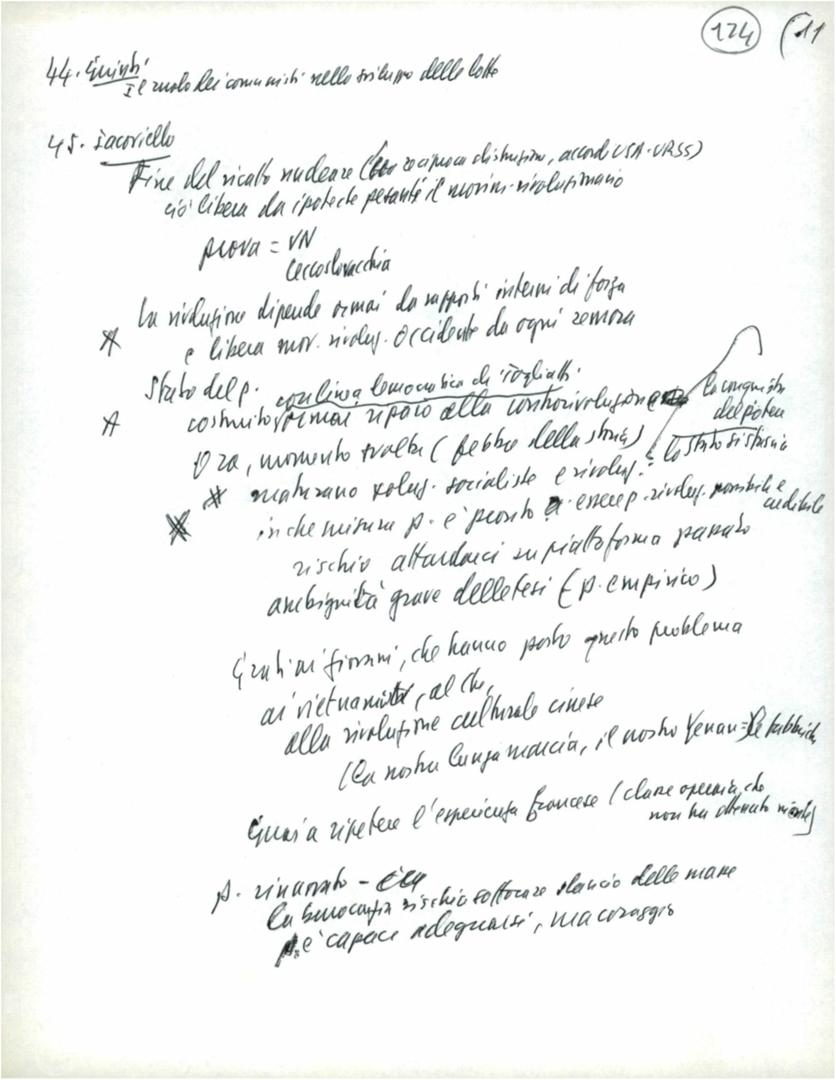 124 (11
44. Quinti
Il ruolo dei comunisti nello sviluppo delle lotte
45. Iacoviello
Fine del ricatto nucleare ( reciproca distruzione, accordo USA-URSS)
ciò libera da ipoteche pesanti il movim. rivoluzionario
prova = VN
Cecoslovacchia
La rivoluzione dipende ormai da rapporti interni di forza
e libera mov. rivoluz. Occidente da ogni remora
Stato del p. con linea democratica di Togliatti
costruito ormai riparo alla controrivoluzione
la conquista
del potere
lo stato si stascia
Ora, momento svolta (febbre della storia)
maturano soluz. socialiste e rivoluz.:
in che misura p. è pronto a essere p. rivoluz. possibile e
credibile
rischio attardarci su piattaforma passato
ambiguità grave delle tesi (p. empirico)
Grati ai giovani, che hanno posto questo problema
ai vietnamiti, al Che,
alla rivoluzione culturale cinese
(la nostra lunga marcia, il nostro Yenan = le fabbriche
Guai a ripetere l'esperienza francese (classe operaia, che
non ha ottenuto niente)
p. rinnovato -
la burocrazia rischia soffocare slancio delle masse
p. è capace adeguarsi, ma coraggio